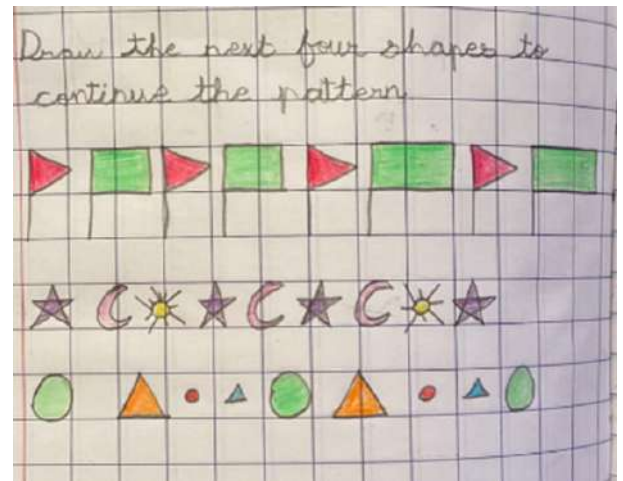 Draw the next four shapes to
continue the pattern